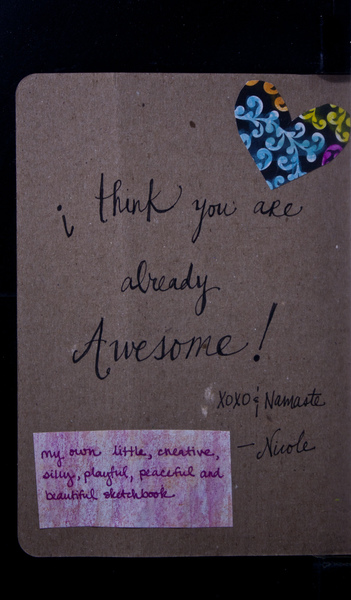 i think you are
already
Awesome!
XOXO & Namaste
— Nicole
my own little, creative,
silly, playful, peaceful and
beautiful sketchbook